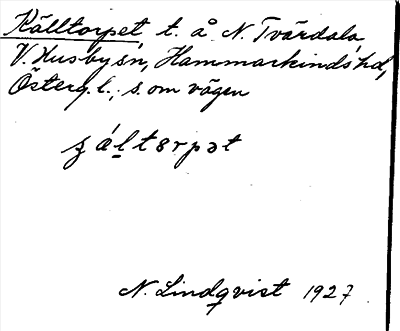 Källtorpet t. å N. Tvärdala
V. Husby sn, Hammarkinds hd,
Österg. l.; s. om vägen
ʒá̀l̲tɵrpət
N. Lindqvist 1927